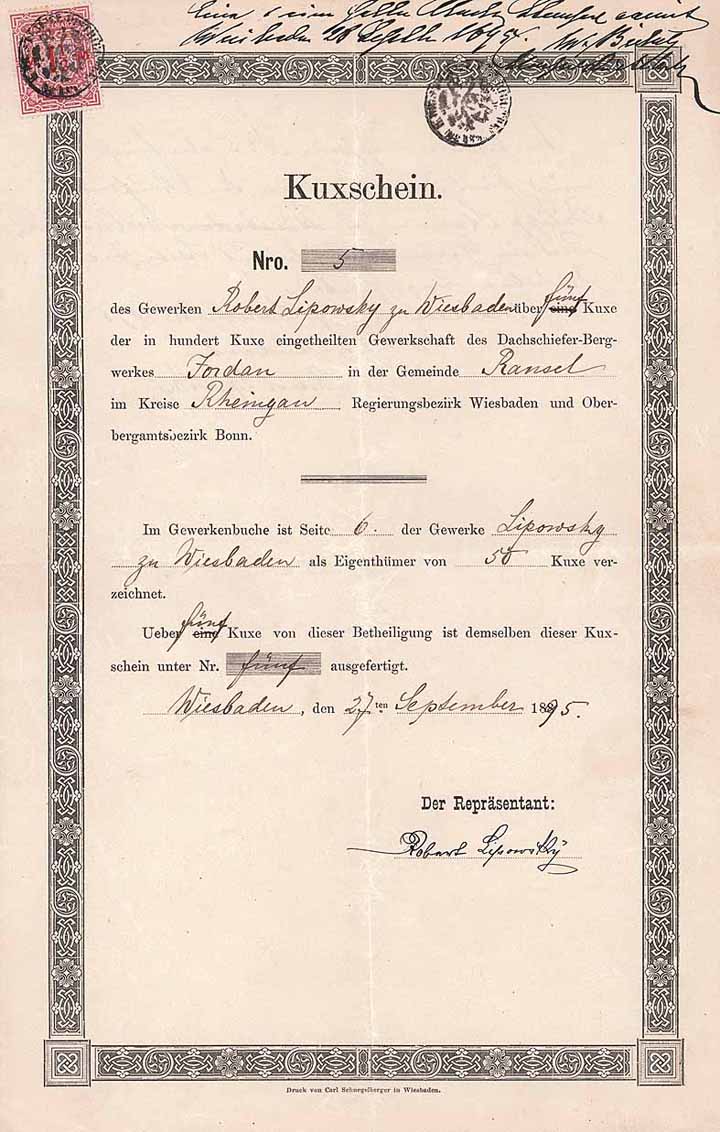 Wiesbaden 28 Septb 1895.
Kuxschein.
Nro. 5
des Gewerken Robert Lipowsky zu Wiesbaden über fünf eine Kuxe
der in hundert Kuxe eingetheilten Gewerkschaft des Dachschiefer-Berg-
werkes Jordan in der Gemeinde Ransel
im Kreise Rheingau, Regierungsbezirk Wiesbaden und Ober-
bergamtsbezirk Bonn.
Im Gewerkenbuche ist Seite 6. der Gewerke Lipowsky
zu Wiesbaden als Eigenthümer von 50 Kuxe ver-
zeichnet.
Ueber fünf eine Kuxe von dieser Betheiligung ist demselben dieser Kux-
schein unter Nr. fünf ausgefertigt.
Wiesbaden, den 27ten September 1895.
Der Repräsentant:
Robert Lipowsky
Druck von Carl Schnegelberger in Wiesbaden.